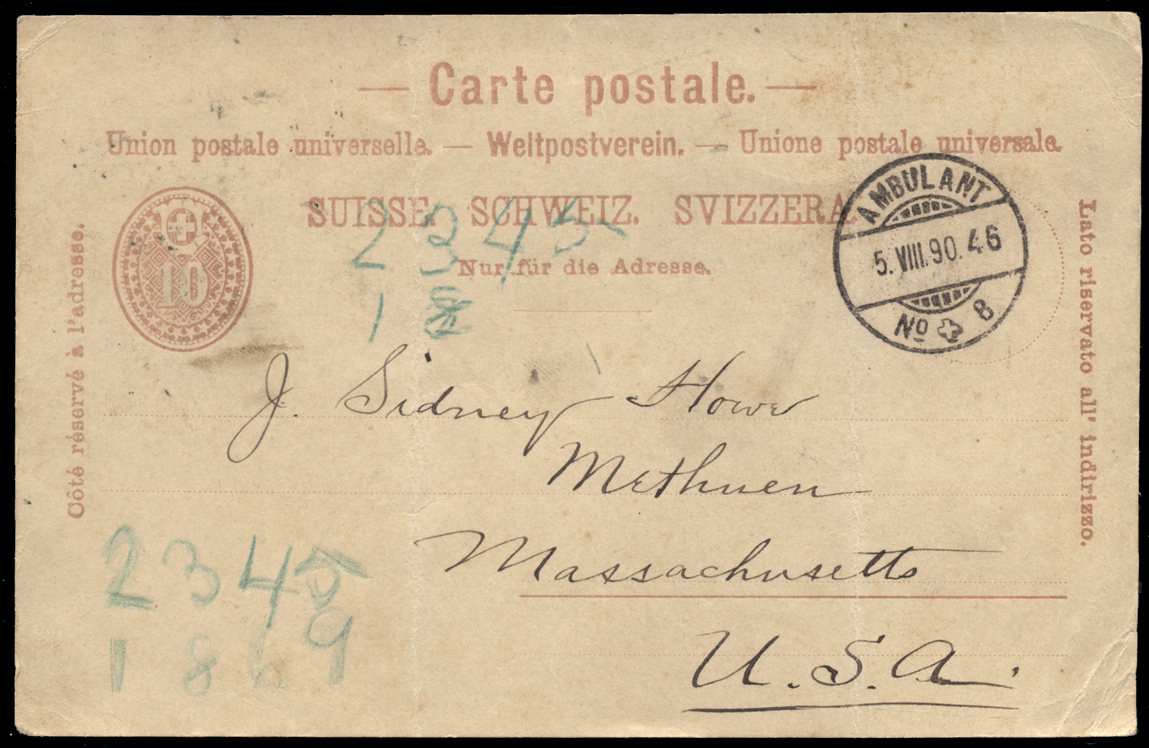 — Carte postale. —
Union postale universelle. — Weltpostverein. — Unione postale universale.
SUISSE. SCHWEIZ. SVIZZERA.
Nur für die Adresse.
Côté réservé à l'adresse.
Lato riservato all' indirizzo.
10
AMBULANT
5.VIII.90.46
No 8
2 3 4 5
1 8
J. Sidney Howe
Methuen
Massachusetts
U.S.A.
2 3 4 5
1 8 6 9